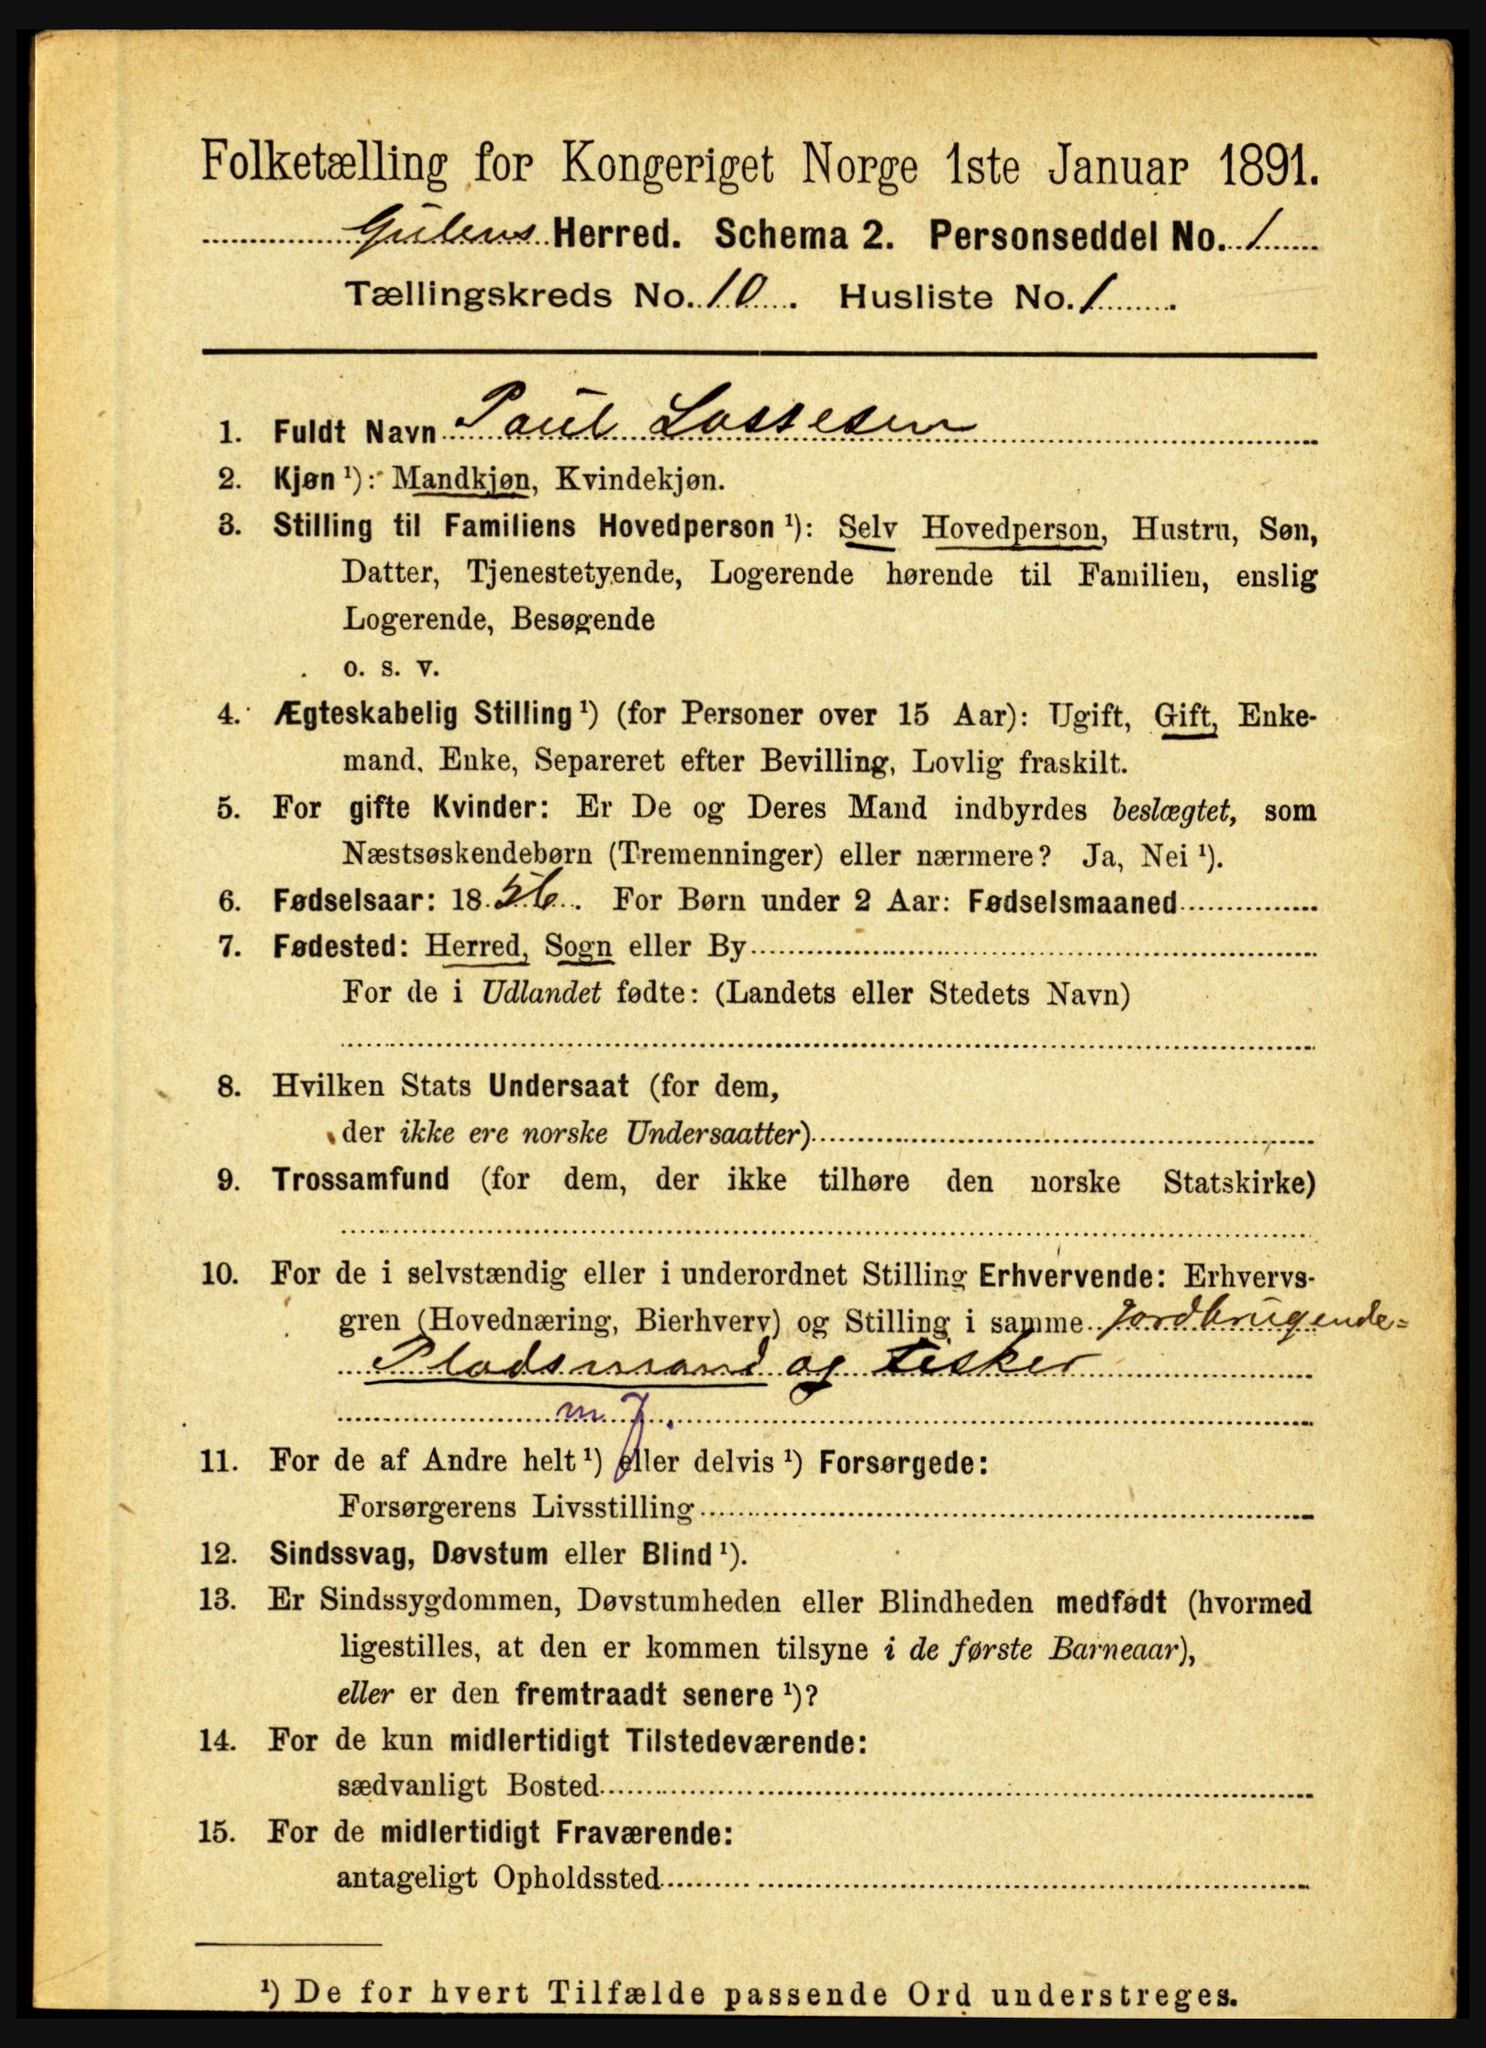 Folketælling for Kongeriget Norge 1ste Januar 1891.
Gulens Herred. Schema 2. Personseddel No. 1
Tællingskreds No. 10. Husliste No. 1.
1. Fuldt Navn Paul Lassesen
2. Kjøn ¹): Mandkjøn, Kvindekjøn.
3. Stilling til Familiens Hovedperson ¹): Selv Hovedperson, Hustru, Søn,
Datter, Tjenestetyende, Logerende hørende til Familien, enslig
Logerende, Besøgende
o. s. v.
4. Ægteskabelig Stilling ¹) (for Personer over 15 Aar): Ugift, Gift, Enke-
mand, Enke, Separeret efter Bevilling, Lovlig fraskilt.
5. For gifte Kvinder: Er De og Deres Mand indbyrdes beslægtet, som
Næstsøskendebørn (Tremenninger) eller nærmere? Ja, Nei ¹).
6. Fødselsaar: 18 For Børn under 2 Aar: Fødselsmaaned
7. Fødested: Herred, Sogn eller By
For de i Udlandet fødte: (Landets eller Stedets Navn)
8. Hvilken Stats Undersaat (for dem,
der ikke ere norske Undersaatter)
9. Trossamfund (for dem, der ikke tilhøre den norske Statskirke)
10. For de i selvstændig eller i underordnet Stilling Erhvervende: Erhvervs-
gren (Hovednæring, Bierhverv) og Stilling i samme Jordbrugende=
Pladsmand og fisker
m. J.
11. For de af Andre helt ¹) eller delvis ¹) Forsørgede:
Forsørgerens Livsstilling
12. Sindssvag, Døvstum eller Blind ¹).
13. Er Sindssygdommen, Døvstumheden eller Blindheden medfødt (hvormed
ligestilles, at den er kommen tilsyne i de første Barneaar),
eller er den fremtraadt senere ¹)?
14. For de kun midlertidigt Tilstedeværende:
sædvanligt Bosted
15. For de midlertidigt Fraværende:
antageligt Opholdssted
¹) De for hvert Tilfælde passende Ord understreges.